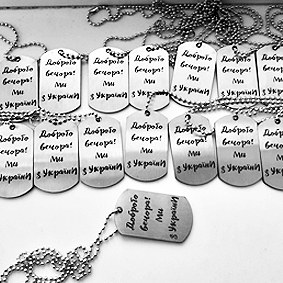 Доброго
вечора!
Ми
з України
Доброго
вечора!
Ми
з України
Доброго
вечора!
Ми
з України
Доброго
вечора!
Ми
з України
Доброго
вечора!
Ми
з України
Доброго
вечора!
Ми
з України
Доброго
вечора!
Ми
з України
Доброго
вечора!
Ми
з України
Доброго
вечора!
Ми
з України
Доброго
вечора!
Ми
з України
Доброго
вечора!
Ми
з України
Доброго
вечора!
Ми
з України
Доброго
вечора!
Ми
з України
Доброго
вечора!
Ми
з України